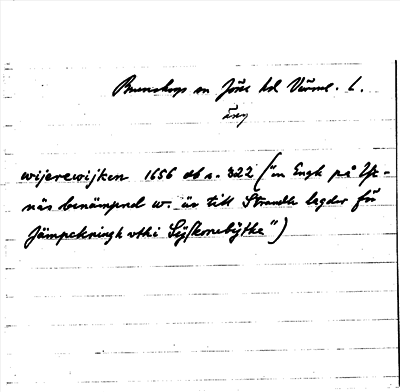 Brunskogs sn Jösse hd Värml. l.
äng
wijerewijken 1656 db s. 322 ("En Engh på Ys-
näs benämpnd w. är till Strandh legder för
Jämpekningh vthi Sÿskonebÿthe")